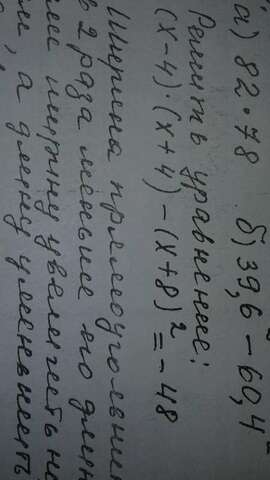 а) 82 · 78   б) 39,6 - 60,4
Решить уравнение:
(x-4)·(x+4)-(x+8)²=-48
Ширина прямоугольни
в 2 раза меньше его длин
ширину увеличить на
а длину уменьшить